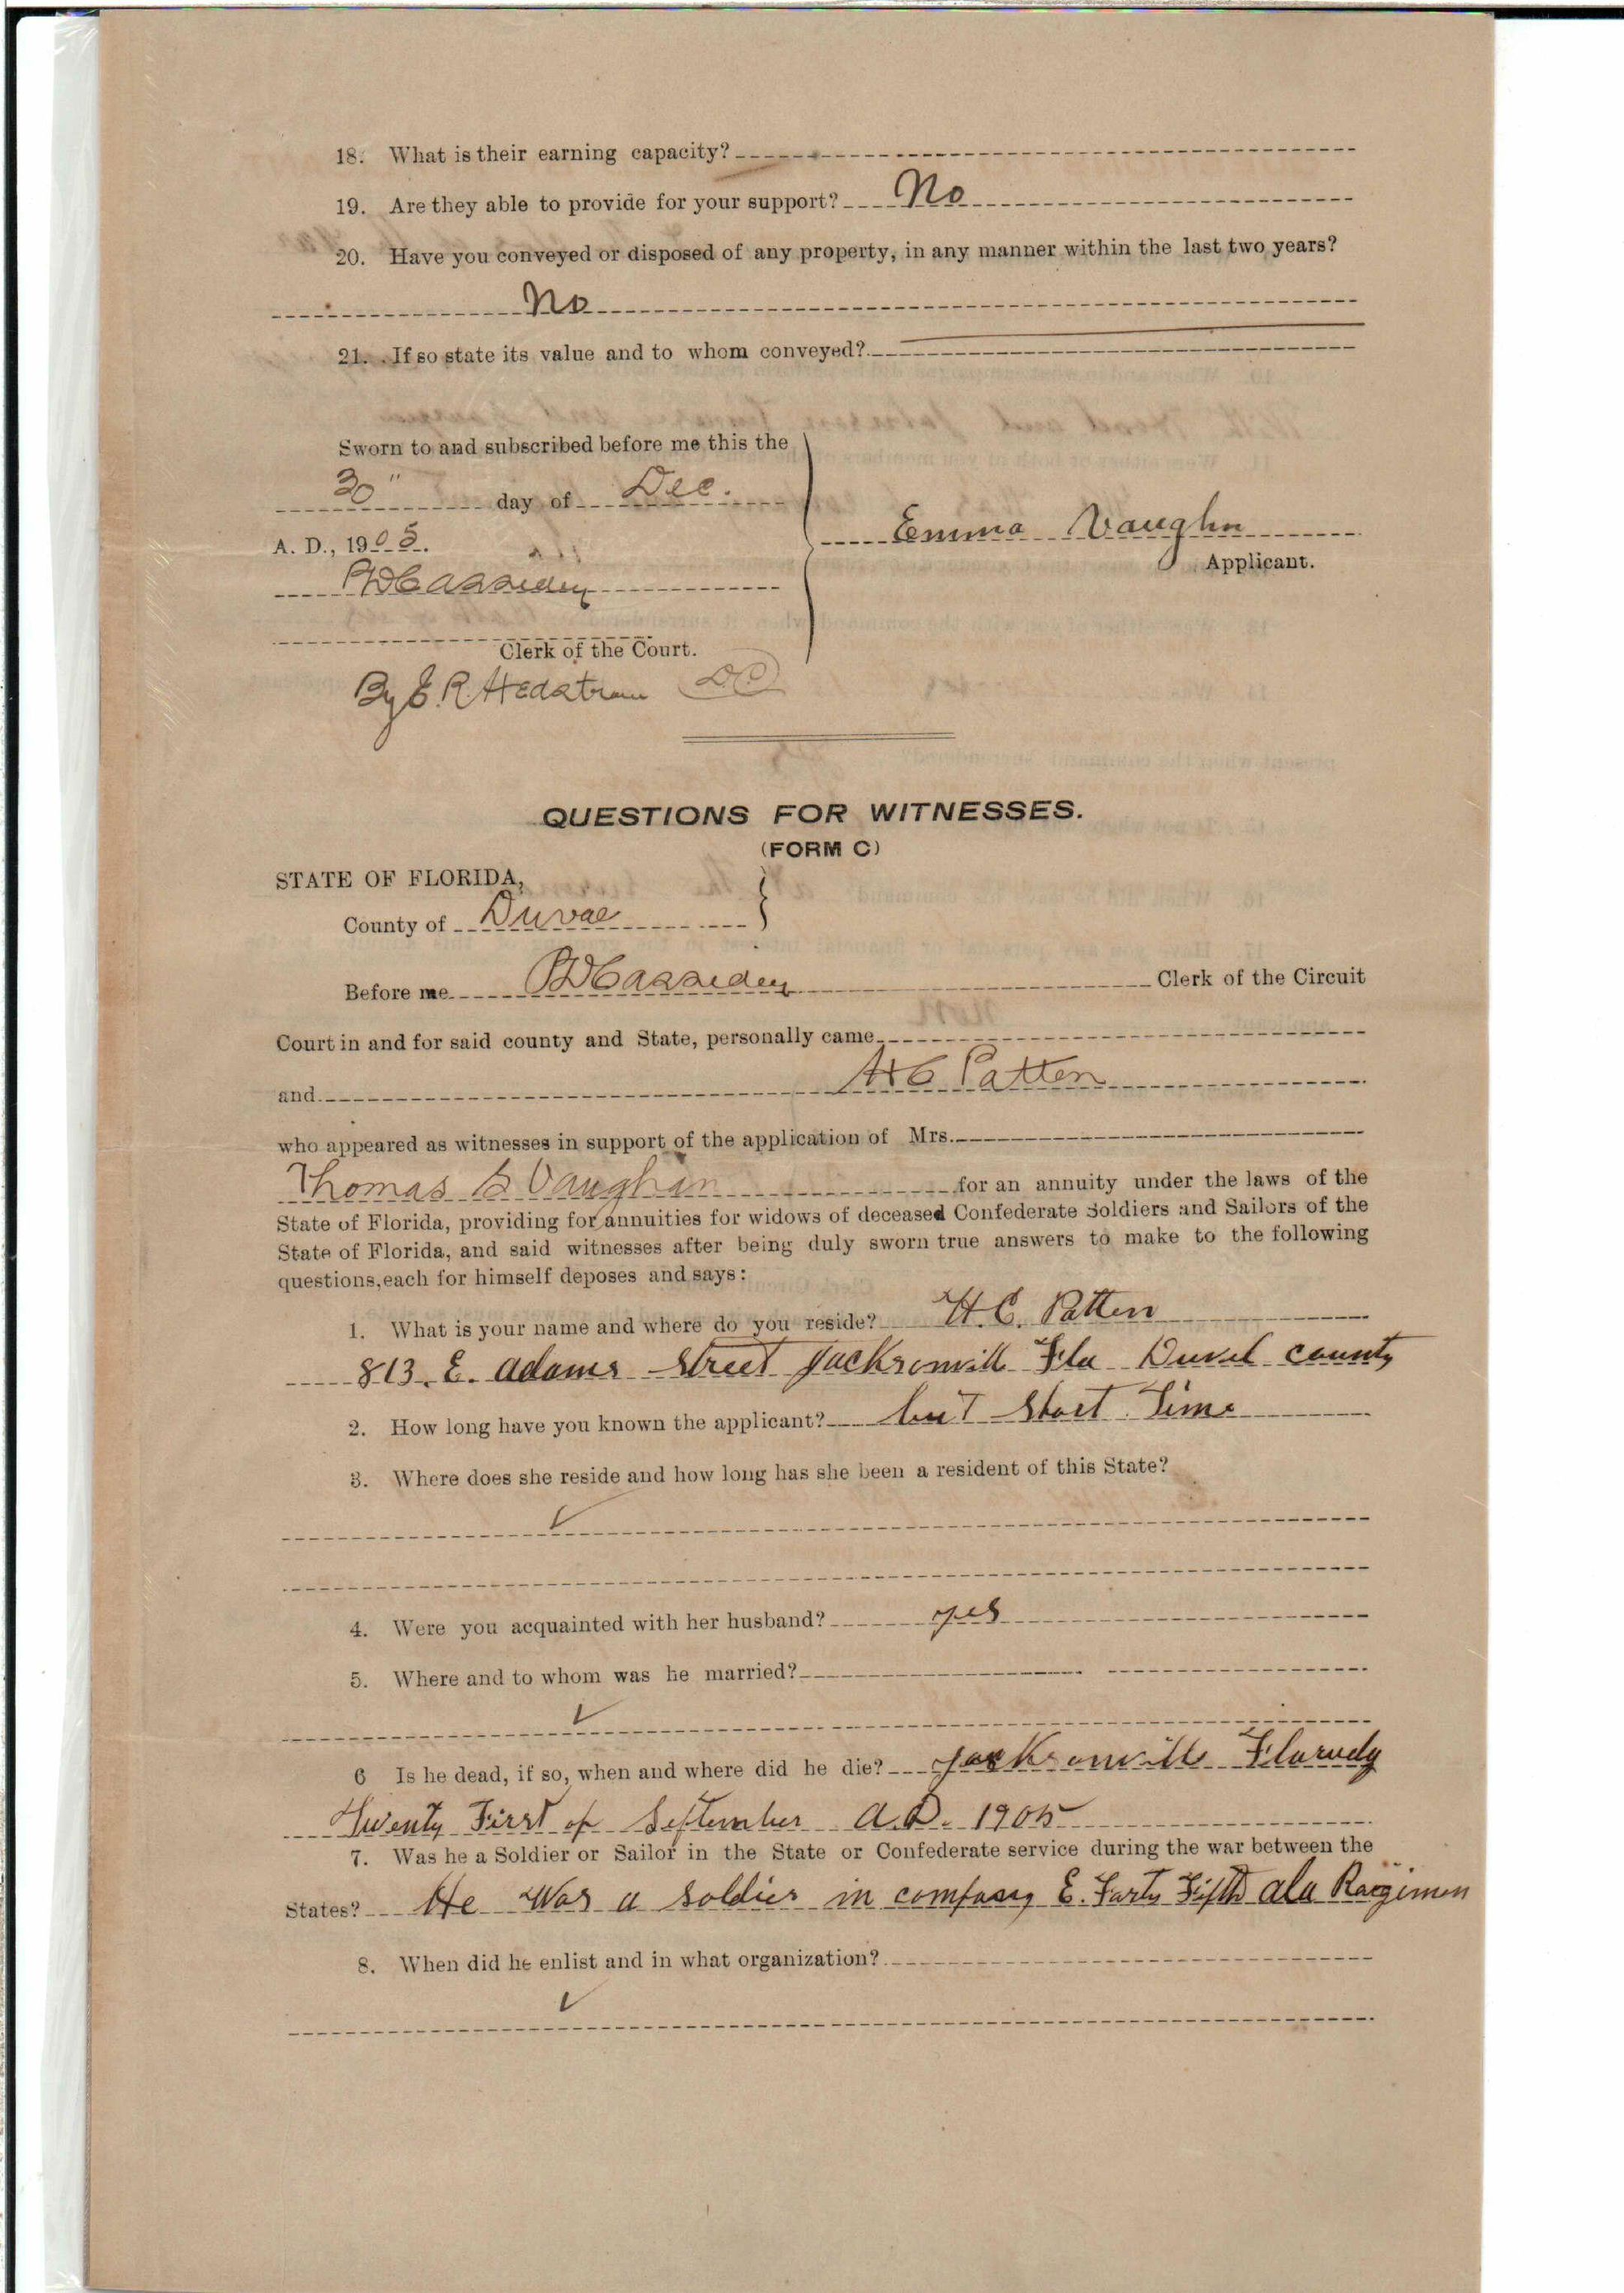 18. What is their earning capacity?
19. Are they able to provide for your support? No
20. Have you conveyed or disposed of any property, in any manner within the last two years?
No
21. If so state its value and to whom conveyed?
Sworn to and subscribed before me this the
30" day of Dec.
A. D., 1905.
Emma Vaughn
Applicant.
PDCassidey
Clerk of the Court.
By E. R. Hedstrom DC
QUESTIONS FOR WITNESSES.
(FORM C)
STATE OF FLORIDA,
County of Duval
Before me PDCassidey Clerk of the Circuit
Court in and for said county and State, personally came
and H C Patten
who appeared as witnesses in support of the application of Mrs.
Thomas B Vaughan for an annuity under the laws of the
State of Florida, providing for annuities for widows of deceased Confederate Soldiers and Sailors of the
State of Florida, and said witnesses after being duly sworn true answers to make to the following
questions, each for himself deposes and says:
1. What is your name and where do you reside? H. C. Patten
813. E. Adams Street Jacksonvill Fla Duvel county
2. How long have you known the applicant? but Short Time
3. Where does she reside and how long has she been a resident of this State?
✓
4. Were you acquainted with her husband? yes
5. Where and to whom was he married?
✓
6 Is he dead, if so, when and where did he die? Jacksonville
Twenty First of September A.D. 1905
7. Was he a Soldier or Sailor in the State or Confederate service during the war between the
States? He Was a Soldier in company E. Forty Fifth ala Raegimen
8. When did he enlist and in what organization?
✓